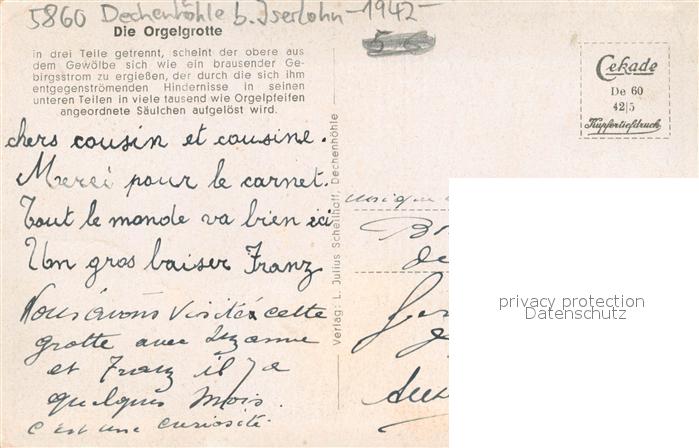 5860 Dechenhöhle b. Iserlohn -1942-
Die Orgelgrotte
in drei Teile getrennt, scheint der obere aus
dem Gewölbe sich wie ein brausender Ge-
birgsstrom zu ergießen, der durch die sich ihm
entgegenströmenden Hindernisse in seinen
unteren Teilen in viele tausend wie Orgelpfeifen
angeordnete Säulchen aufgelöst wird.
Cekade
De 60
42/5
Kupfertiefdruck
chers cousin et cousine.
Merci pour le carnet.
Tout le monde va bien ici
Un gros baiser Franz
Nous avons visité cette
grotte avec Suzanne
et Franz il y a
quelques mois.
c'est une curiosité.
Verlag: L. Julius Schellhoff, Dechenhöhle
privacy protection
Datenschutz